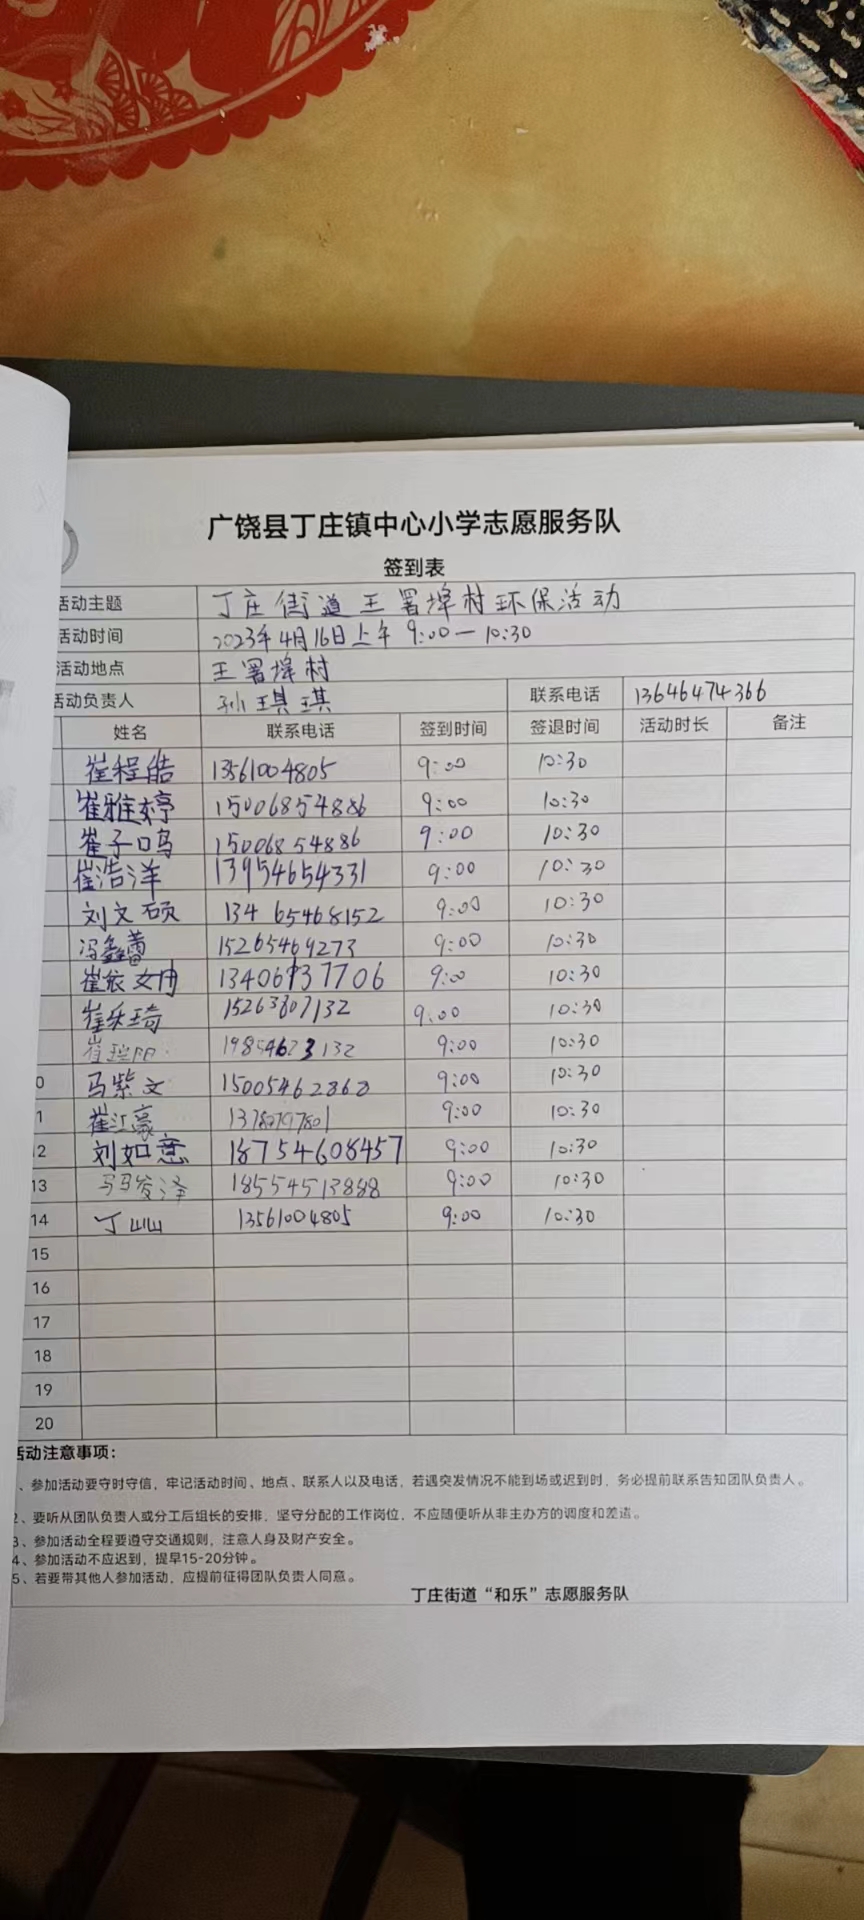 广饶县丁庄镇中心小学志愿服务队
签到表
活动主题 丁庄街道王署埠村环保活动
活动时间 2023年4月16日上午 9:00—10:30
活动地点 王署埠村
活动负责人 孙琪琪 联系电话 13646474366
姓名 联系电话 签到时间 签退时间 活动时长 备注
崔程皓 13561004805 9:00 10:30
崔雅婷 15006854886 9:00 10:30
崔子鸣 15006854886 9:00 10:30
崔浩洋 13954654331 9:00 10:30
刘文硕 13465468152 9:00 10:30
冯鑫蕾 15265469273 9:00 10:30
崔依女冉 13406937706 9:00 10:30
崔乐琦 15263807132 9:00 10:30
崔 19854623132 9:00 10:30
0 马紫文 15005462868 9:00 10:30
1 崔江豪 9:00 10:30
2 刘如意 18754608457 9:00 10:30
13 18554513888 9:00 10:30
14 丁 13561004805 9:00 10:30
15
16
17
18
19
20
活动注意事项：
、参加活动要守时守信，牢记活动时间、地点、联系人以及电话，若遇突发情况不能到场或迟到时，务必提前联系告知团队负责人。
2、要听从团队负责人或分工后组长的安排，坚守分配的工作岗位，不应随便听从非主办方的调度和差遣。
3、参加活动全程要遵守交通规则，注意人身及财产安全。
4、参加活动不应迟到，提早15-20分钟。
5、若要带其他人参加活动，应提前征得团队负责人同意。
丁庄街道“和乐”志愿服务队